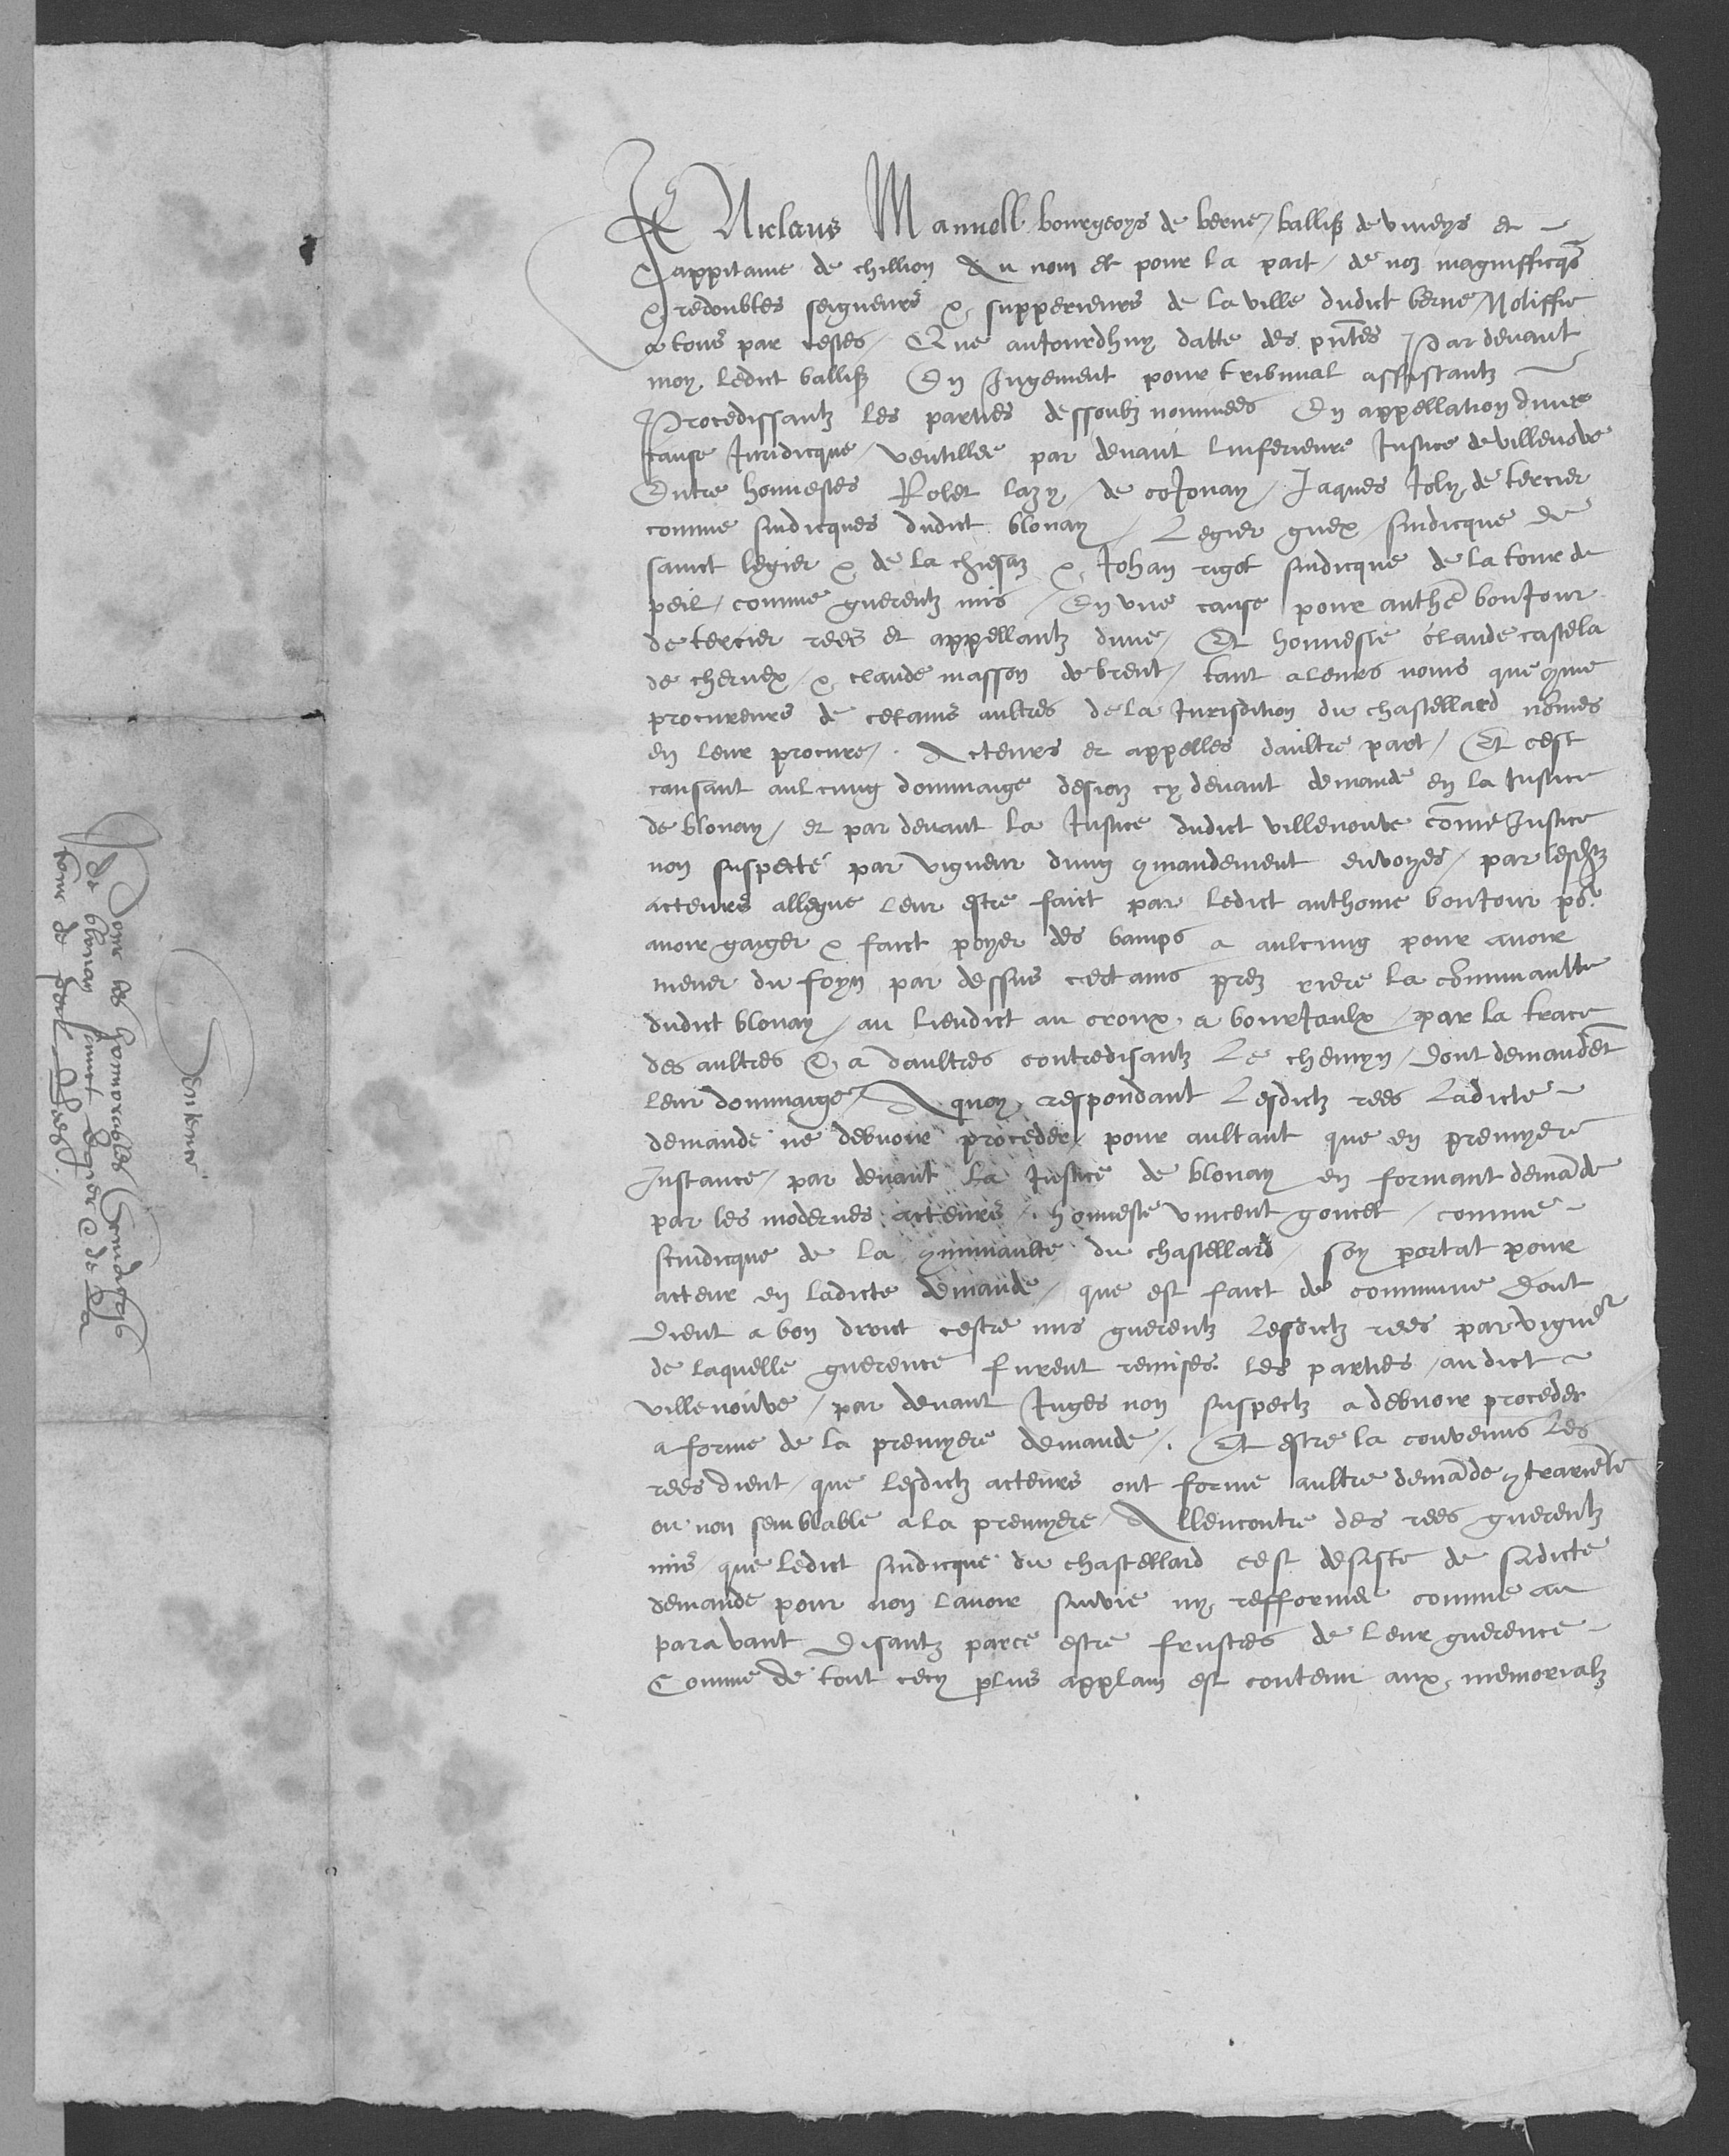 Je Niclaus Manuell bourgeoys de berne / ballifz de viveys et
cappitaine de chillion Au nom et pour la part / de noz magnifficqs
& redoubtes seigneurs & supperieurs de la ville dudict berne / Notiffie
a tous par cestes / Que aujourdhuy datte des pntes Par devant
moy ledict ballifz En Jugement pour tribunal assistantz
Procedissantz les parties dessoubz nommees En appellation dune
cause Juridicque / ventillee par devant linferieure Justice de villenove
Entre honnestes Rolet lazy / de cojonay / Jaques Joly de tercier
comme sindicques dudict blonay / Legier guex / sindicque de
sainct legier & de la chiesaz & Johan rigot sindicque de la tour de
peil / comme guerentz mis / En une cause pour anthe bonJour
de tercier rees et appellantz dune / Et honneste claude castela
de chernex / & claude masson de brent / tant a leurs noms que come
procureurs de cetains aultres de la Jurisdition du chastellard nomes
en leur procure / Acteurs et appelles daultre part / Et cest
causant aulcung dommaige desjaz cy devant demande en la Justice
de blonay / et par devant la Justice dudict villenouve come Justice
non suspecte par vigueur dung comandement envoyes / par lesdtz
acteurs allegue leur estre faict par ledict anthoine bonJour po
avoir gaiger & faict poyer des bamps a aulcung pour avoir
mener du foyn par dessus certains prez riere la communaulte
dudict blonay / au lieudict au croux a bourJaulx / par la trace
des aultres & a daultres contredisantz Le chemyn / Dont demandent
leur dommaige / A quoy respondant Lesdictz rees Ladicte
demande ne debvoir proceder / pour aultant que en premyere
Instance / par devant la Justice de blonay en formant demande
par les modernes acteurs / honneste vincent goncet / comme
scindicque de la comunaulte du chastellard / soy portat pour
acteur en ladicte demande / que est faict de commune Dont
Dient a bon droict cestre mis guerentz Lesdictz rees par vigueur
de laquelle guerence furent remises les parties / audict
villenouve / par devant Juges non suspectz a debvoir proceder
a forme de la premyere demande / Et estre la convenus Les
rees dient / que lesdictz acteurs ont forme aultre demande contrariente
ou non semblable a la premyere / Allencontre des rees guerentz
mis / que ledict sindicque du chastellard cest desiste de sadicte
demande pour non lavoir suivie ny refformee comme au
paravant Disantz parce estre frustres de leur guerence
Comme de tout cecy plus applain est contenu aux memorialz
Sentence
Pour les honnorables scindicqs
de blonay sainct legier & de La
tour de peil